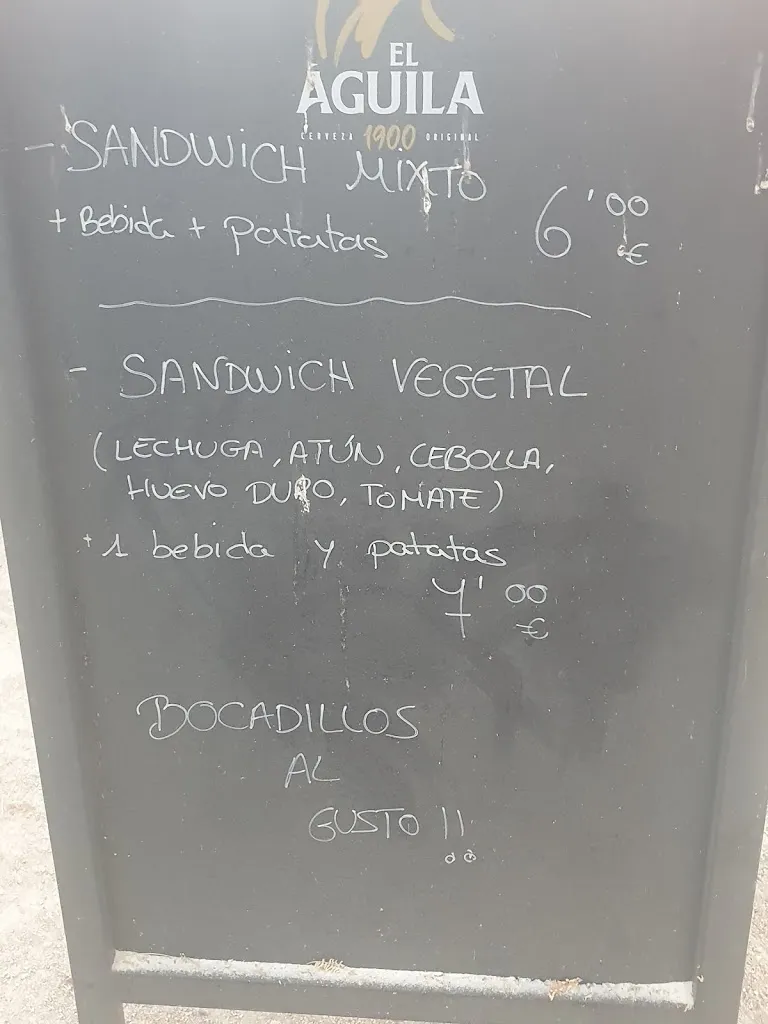 EL
AGUILA
CERVEZA 1900 ORIGINAL
- SANDWiCH MIXTO
+ Bebida + patatas 6'00
€
- SANDWiCH VEGETAL
(LECHUGA, ATÚN, CEBOLLA,
HUEVO DURO, TOMATE)
+ 1 bebida y patatas
7'00
€
BOCADILLOS
AL
GUSTO !!